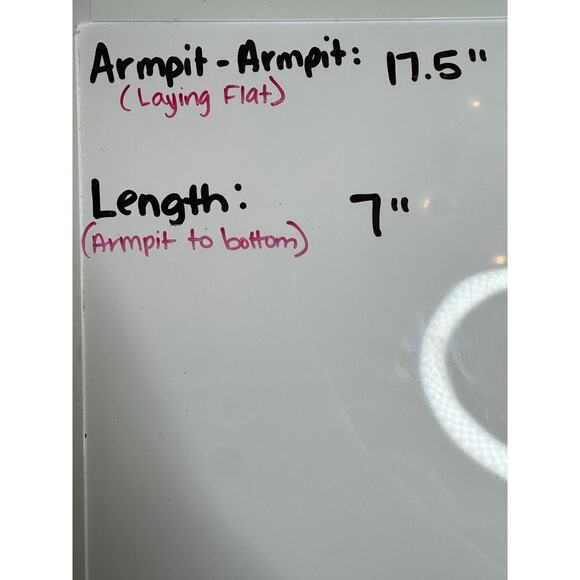 Armpit - Armpit: 17.5"
(Laying Flat)
Length: 7"
(Armpit to bottom)